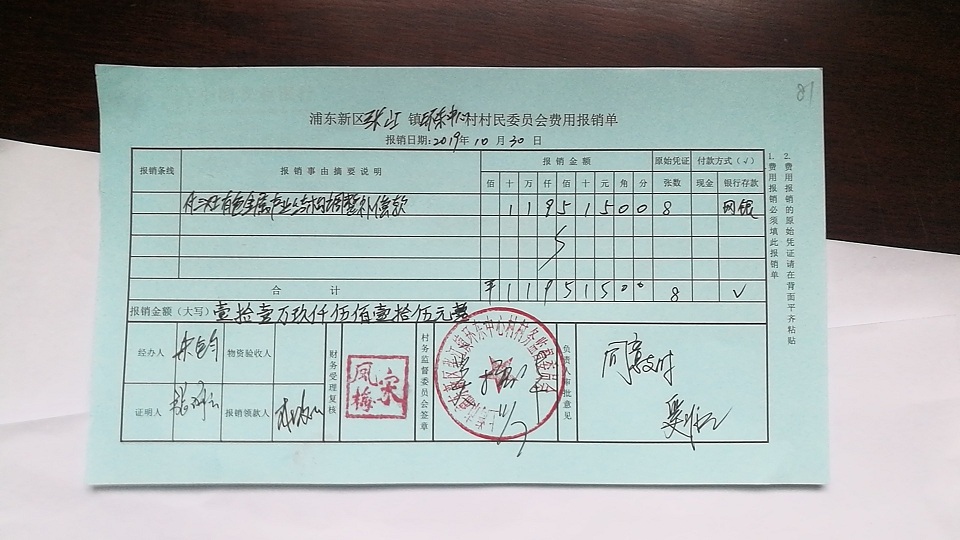 81
浦东新区张江镇环东中心村村民委员会费用报销单
报销日期:2019年10月30日
报销条线 报销事由摘要说明 报销金额 原始凭证 付款方式(√)
佰 十 万 仟 佰 十 元 角 分 张数 现金 银行存款
付 有色金属 产业结构调整补偿款 1 1 9 5 1 5 0 0 8 网银
合计 ¥ 1 1 9 5 1 5 0 0 8 √
报销金额(大写) 壹拾壹万玖仟伍佰壹拾伍元整
经办人 物资验收人
证明人 报销领款人
财务受理复核
宋凤梅
村务监督委员会签章
张江镇环东中心村村务监督委员会
负责人审批意见
同意支付
1.费用报销必须填此报销单
2.费用报销的原始凭证请在背面平齐粘贴